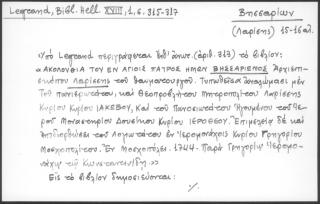 Legrand, Bibl. Hell XVIII, 1, σ. 315-317
Βησσαρίων
(Λαρίσης) 15-16 αἰ.
Ὑπὸ Legrand περιγράφεται (ἀριθ. 317) τὸ βιβλίον:
«ΑΚΟΛΟΥΘΙΑ ΤΟΥ ΕΝ ΑΓΙΟΙΣ ΠΑΤΡΟΣ ΗΜΩΝ ΒΗΣΣΑΡΙΩΝΟΣ Ἀρχιεπι-
σκόπου Λαρίσσης τοῦ θαυματουργοῦ. Τυπωθεῖσα ἀναλώμασι μὲν
τοῦ πανιερωτάτου, καὶ Θεοπροβλήτου Μητροπολίτου Λαρίσσης
Κυρίου Κυρίου ΙΑΚΩΒΟΥ, καὶ τοῦ Πανοσιωτάτου Ἡγουμένου τοῦ Σεβ.
Μοναστηρίου Δουσίκου Κυρίου ΙΕΡΟΘΕΟΥ. Ἐπιμελείᾳ δὲ καὶ
διορθώσει τοῦ Λογιωτάτου ἐν Ἱερομονάχοις Κυρίου Γρηγορίου
Μοσχοπολίτου. Ἐν Μοσχοπόλει. 1744. Παρὰ Γρηγορίῳ Ἱερομο-
νάχῳ τῷ Κωνσταντινίδῃ.»
Εἰς τὸ βιβλίον δημοσιεύονται:
·/.